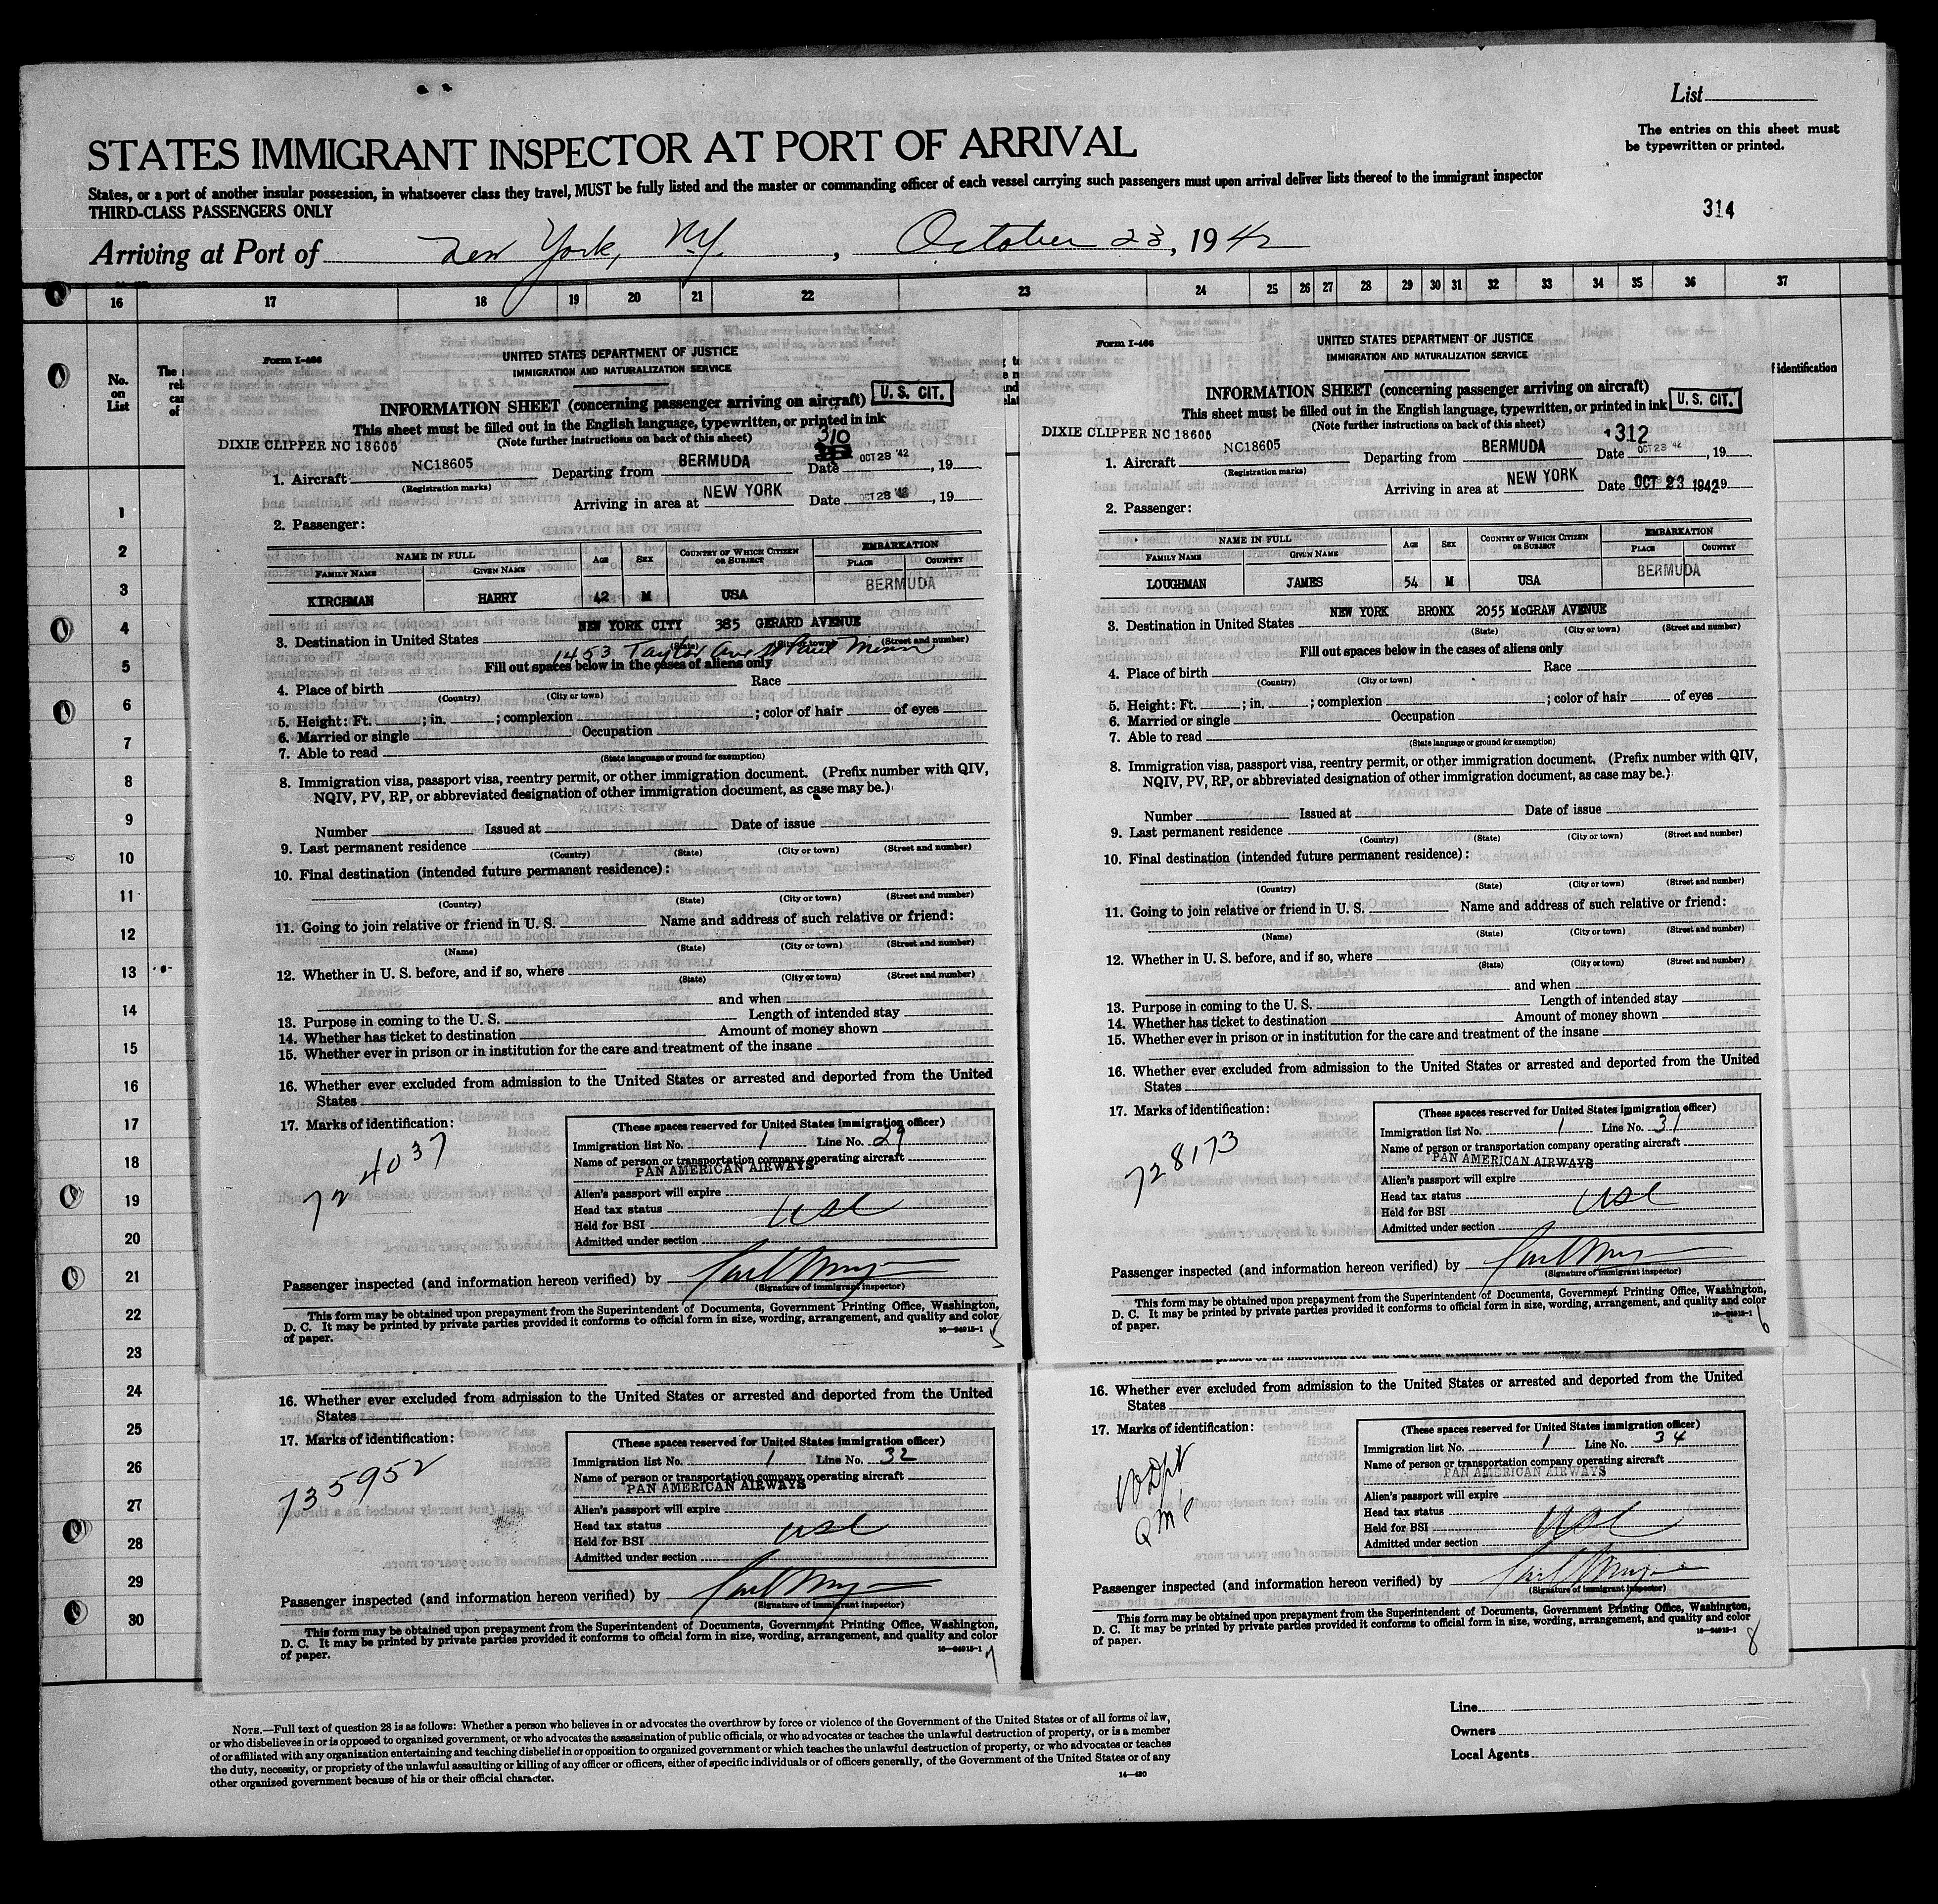 List
The entries on this sheet must
be typewritten or printed.
STATES IMMIGRANT INSPECTOR AT PORT OF ARRIVAL
States, or a port of another insular possession, in whatsoever class they travel, MUST be fully listed and the master or commanding officer of each vessel carrying such passengers must upon arrival deliver lists thereof to the immigrant inspector
THIRD-CLASS PASSENGERS ONLY
314
Arriving at Port of New York, N.Y., October 23, 1942
16 17 18 19 20 21 22 23 24 25 26 27 28 29 30 31 32 33 34 35 36 37
No.
on
List
1
2
3
4
5
6
7
8
9
10
11
12
13
14
15
16
17
18
19
20
21
22
23
24
25
26
27
28
29
30
Form I-466
UNITED STATES DEPARTMENT OF JUSTICE
IMMIGRATION AND NATURALIZATION SERVICE
INFORMATION SHEET (concerning passenger arriving on aircraft) U. S. CIT.
This sheet must be filled out in the English language, typewritten, or printed in ink
DIXIE CLIPPER NC 18605 (Note further instructions on back of this sheet) 310
1. Aircraft NC18605 Departing from BERMUDA Date OCT 23 '42, 19
(Registration marks)
Arriving in area at NEW YORK Date OCT 23 '42, 19
2. Passenger:
NAME IN FULL Age Sex Country of Which Citizen or Subject EMBARKATION
Family Name Given Name Place Country
KIRCHMAN HARRY 42 M USA BERMUDA
3. Destination in United States NEW YORK CITY 385 GERARD AVENUE
(State) (Street and number)
1453 Taylor Ave St Paul Minn
Fill out spaces below in the cases of aliens only
4. Place of birth Race
(Country) (City or town)
5. Height: Ft. ; in. ; complexion ; color of hair of eyes
6. Married or single Occupation
7. Able to read
(State language or ground for exemption)
8. Immigration visa, passport visa, reentry permit, or other immigration document. (Prefix number with QIV,
NQIV, PV, RP, or abbreviated designation of other immigration document, as case may be.)
Number Issued at Date of issue
9. Last permanent residence
(Country) (State) (City or town) (Street and number)
10. Final destination (intended future permanent residence):
(Country) (State) (City or town) (Street and number)
11. Going to join relative or friend in U. S. Name and address of such relative or friend:
(Name) (State) (City or town) (Street and number)
12. Whether in U. S. before, and if so, where
(State) (City or town) (Street and number)
and when
13. Purpose in coming to the U. S. Length of intended stay
14. Whether has ticket to destination Amount of money shown
15. Whether ever in prison or in institution for the care and treatment of the insane
16. Whether ever excluded from admission to the United States or arrested and deported from the United
States
17. Marks of identification:
724037
(These spaces reserved for United States immigration officer)
Immigration list No. 1 Line No. 29
Name of person or transportation company operating aircraft
PAN AMERICAN AIRWAYS
Alien's passport will expire
Head tax status
Held for BSI USC
Admitted under section
Passenger inspected (and information hereon verified) by
(Signature of immigrant inspector)
This form may be obtained upon prepayment from the Superintendent of Documents, Government Printing Office, Washington,
D. C. It may be printed by private parties provided it conforms to official form in size, wording, arrangement, and quality and color
of paper.
16-24915-1
5
Form I-466
UNITED STATES DEPARTMENT OF JUSTICE
IMMIGRATION AND NATURALIZATION SERVICE
INFORMATION SHEET (concerning passenger arriving on aircraft) U. S. CIT.
This sheet must be filled out in the English language, typewritten, or printed in ink
DIXIE CLIPPER NC 18605 (Note further instructions on back of this sheet) 312
1. Aircraft NC18605 Departing from BERMUDA Date OCT 23 '42, 19
(Registration marks)
Arriving in area at NEW YORK Date OCT 23 1942 19
2. Passenger:
NAME IN FULL Age Sex Country of Which Citizen or Subject EMBARKATION
Family Name Given Name Place Country
LOUGHMAN JAMES 54 M USA BERMUDA
3. Destination in United States NEW YORK BRONX 2055 McGRAW AVENUE
(State) (City or town) (Street and number)
Fill out spaces below in the cases of aliens only
4. Place of birth Race
(Country) (City or town)
5. Height: Ft. ; in. ; complexion ; color of hair of eyes
6. Married or single Occupation
7. Able to read
(State language or ground for exemption)
8. Immigration visa, passport visa, reentry permit, or other immigration document. (Prefix number with QIV,
NQIV, PV, RP, or abbreviated designation of other immigration document, as case may be.)
Number Issued at Date of issue
9. Last permanent residence
(Country) (State) (City or town) (Street and number)
10. Final destination (intended future permanent residence):
(Country) (State) (City or town) (Street and number)
11. Going to join relative or friend in U. S. Name and address of such relative or friend:
(Name) (State) (City or town) (Street and number)
12. Whether in U. S. before, and if so, where
(State) (City or town) (Street and number)
and when
13. Purpose in coming to the U. S. Length of intended stay
14. Whether has ticket to destination Amount of money shown
15. Whether ever in prison or in institution for the care and treatment of the insane
16. Whether ever excluded from admission to the United States or arrested and deported from the United
States
17. Marks of identification:
728173
(These spaces reserved for United States immigration officer)
Immigration list No. 1 Line No. 31
Name of person or transportation company operating aircraft
PAN AMERICAN AIRWAYS
Alien's passport will expire
Head tax status
Held for BSI USC
Admitted under section
Passenger inspected (and information hereon verified) by
(Signature of immigrant inspector)
This form may be obtained upon prepayment from the Superintendent of Documents, Government Printing Office, Washington,
D. C. It may be printed by private parties provided it conforms to official form in size, wording, arrangement, and quality and color
of paper.
16-24915-1
6
16. Whether ever excluded from admission to the United States or arrested and deported from the United
States
17. Marks of identification:
735952
(These spaces reserved for United States immigration officer)
Immigration list No. 1 Line No. 32
Name of person or transportation company operating aircraft
PAN AMERICAN AIRWAYS
Alien's passport will expire
Head tax status
Held for BSI USC
Admitted under section
Passenger inspected (and information hereon verified) by
(Signature of immigrant inspector)
This form may be obtained upon prepayment from the Superintendent of Documents, Government Printing Office, Washington,
D. C. It may be printed by private parties provided it conforms to official form in size, wording, arrangement, and quality and color
of paper.
16-24915-1
7
16. Whether ever excluded from admission to the United States or arrested and deported from the United
States
17. Marks of identification:
(These spaces reserved for United States immigration officer)
Immigration list No. 1 Line No. 34
Name of person or transportation company operating aircraft
PAN AMERICAN AIRWAYS
Alien's passport will expire
Head tax status
Held for BSI USC
Admitted under section
Passenger inspected (and information hereon verified) by
(Signature of immigrant inspector)
This form may be obtained upon prepayment from the Superintendent of Documents, Government Printing Office, Washington,
D. C. It may be printed by private parties provided it conforms to official form in size, wording, arrangement, and quality and color
of paper.
16-24915-1
8
Note.—Full text of question 28 is as follows: Whether a person who believes in or advocates the overthrow by force or violence of the Government of the United States or of all forms of law,
or who disbelieves in or is opposed to organized government, or who advocates the assassination of public officials, or who advocates or teaches the unlawful destruction of property, or is a member
of or affiliated with any organization entertaining and teaching disbelief in or opposition to organized government or which teaches the unlawful destruction of property, or who advocates or teaches
the duty, necessity, or propriety of the unlawful assaulting or killing of any officer or officers, either of specific individuals or of officers generally, of the Government of the United States or of any
other organized government because of his or their official character.
14-420
Line
Owners
Local Agents